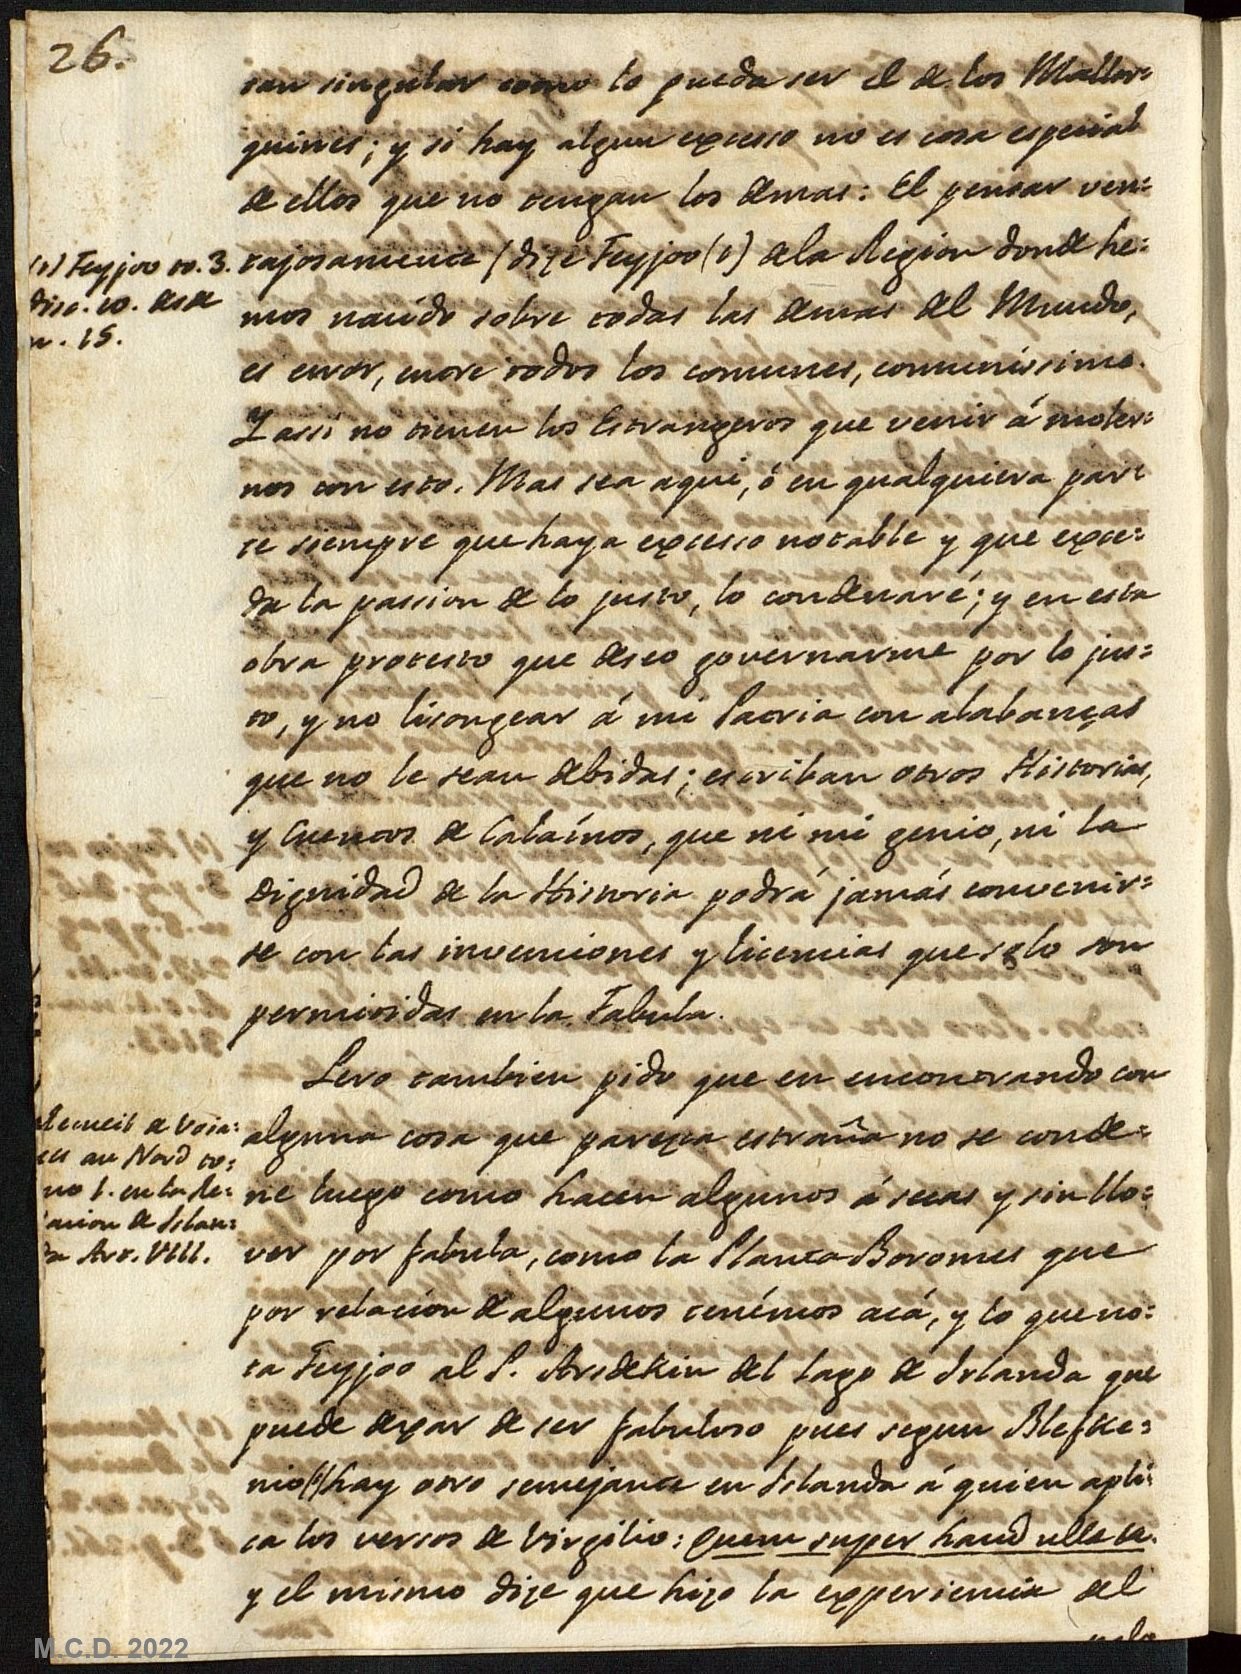 26.
tan singular como lo pueda ser el de los Mallor=
quines; y si hay algun excesso no es cosa especial
de ellos que no tengan los demas: El pensar ven=
tajosamente (dize Feyjoo (1) de la Region donde he=
mos nacido sobre todas las demas del Mundo,
es error, entre todos los comunes, comunissimo.
Y assi no tienen los Estrangeros que venir á moler=
nos con esto. Mas sea aqui, ó en qualquiera par=
te siempre que haya excesso notable y que exce=
da la passion de lo justo, lo condenaré; y en esta
obra protesto que deseo governarme por lo jus=
to, y no lisongear á mi Patria con alabanças
que no le sean debidas; escriban otros Historias,
y Cuentos de Calaínos, que ni mi genio, ni la
Dignidad de la Historia podrá jamás convenir=
se con las invenciones y licencias que solo son
permitidas en la Fabula.
Pero tambien pido que en encontrando con
alguna cosa que parezca estraña no se conde=
ne luego como hacen algunos á secas y sin llo=
ver por fabula, como la Planta Boromes que
por relacion de algunos tenémos acá, y lo que no=
ta Feyjoo al P. Arsdekin del lago de Irlanda que
puede dexar de ser fabuloso pues segun Blefke=
nio(1) hay otro semejante en Islanda á quien apli=
ca los versos de Virgilio: Quem super haud ullæ &a.
y el mismo dize que hizo la experiencia del
(1) Feyjoo to. 3.
disc. 10. desde
n. 15.
Recueil de Voia=
ges au Nord to=
mo 1. en la Re=
lacion de Islan=
da Art. VIII.
M.C.D. 2022